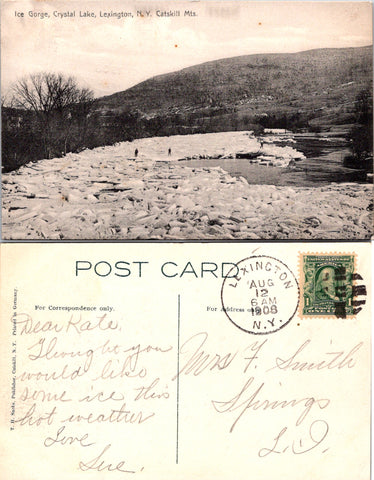 Ice Gorge, Crystal Lake, Lexington, N. Y. Catskill Mts.
POST CARD
For Correspondence only.
For address only.
LEXINGTON
AUG
12
6 AM
1908
N.Y.
Dear Kate,
Thought you
would like
some ice this
hot weather
Love
Sue.
Mrs F. Smith
Springs
L.I.